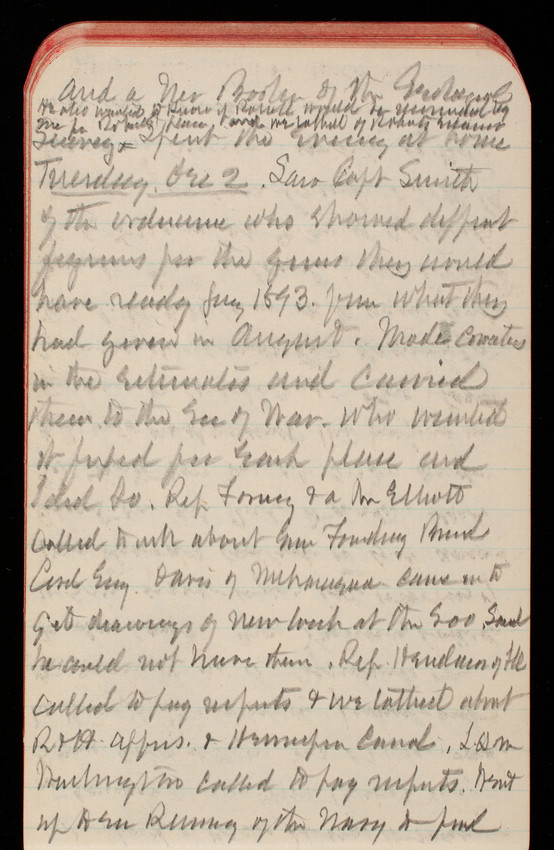 and a Mr Bosler of the Geological
He also wanted to know if Powell would be
me for to talk of
Survey & Spent the evening at home
Tuesday. Dec 2. Saw Capt Smith
of the ordnance who showed diffrent
figures for the guns they would
have ready Jany 1893. from what they
had given in August. Made
in the Estimates and carried
them to the Sec of War. who wanted
it fixed for each place and
I did So. Rep Forney & a Mr Elliott
called to ask about Gun Foundry Bend
Civil Eng. Davis of Milwaukee came in to
get drawings of new lock at the Soo Said
he could not have them. Rep. Henderson of Ill
called to pay respects & we talked about
R & H affrs. & Hennepin Canal.
Huntington called to pay respects. Went
up to see Remey of the Navy to find